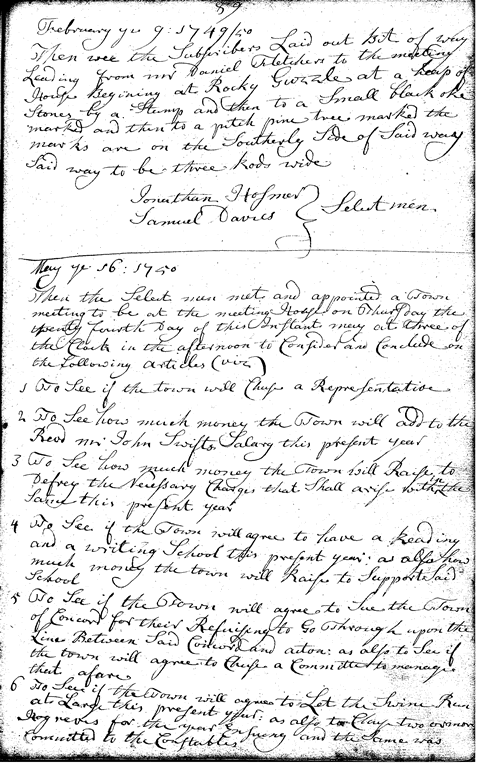 89
February ye 9: 1749/50
Then wee the Subscribers Laid out Bit of way
Leading from mr Daniel Fletchers to the meeting
House Begining at Rocky Guzzle at a heap of
Stones by a Stump and then to a Small black oke
marked and then to a pitch pine tree marked the
marks are on the Southerly Side of Said way
Said way to be three Rods wide
Jonathan Hosmer
Samuel Davies } Select men
May ye 16: 1750
Then the Select men met and appointed a Town
meeting to be at the meeting House on Thursday the
twenty fourth Day of this Instant may at three of
the Clock in the afternoon to Consider and Conclude on
the following articles (viz)
1 To See if the town will Chuse a Representative
2 To See how much money the Town will add to the
Revd mr John Swifts Salary this present year
3 To See how much money the Town will Raise to
Defrey the Nessary Charges that Shall arise within the
Same this present year
4 To See if the Town will agree to have a Reading
and a writing School this present year: as also how
much money the town will Raise to Supporte Said
School
5 To See if the Town will agree to Sue the Town
of Concord for their Refuising to Go Through upon the
Line Between Said Concord and acton: as also to See if
the town will agree to Chuse a Committe to manage
that afare
6 To See if the Town will agree to Let the Swine Run
at Large this present year: as also to Chuse two or more
Hogreves for the year Ensueng and the Same was
Committed to the Constables